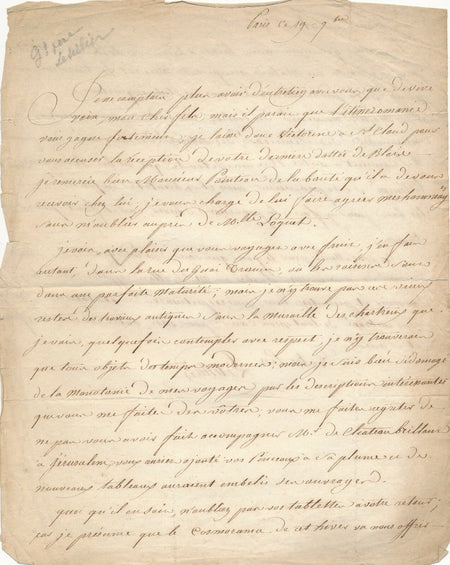 Gd père
Letellier
Paris ce 19 9bre
Je ne comptais plus avoir d'entretien avec vous que de vive
voix, mon cher fils, mais il parait que
vous gagne fortement, je laisse donc Victorine à St Cloud pour
vous accuser la réception de votre dernière dattée de Blaix
je remercie bien Monsieur de la bonté qu'il a de vous
recevoir chez lui, je vous charge de lui faire agréer mes hommages
sans m'oublier auprès de Mlle Loquet.
je vois, avec plaisir que vous voyagez avec fruit, j'en fais
autant, dans la rue du Quai
dans une parfaite maturité; mais je n'y trouve pas ces vieux
restes des travaux antiques sans la muraille des chartreux que
je vais, quelquefois contempler avec respect, je n'y trouve rien
que tous objets des temps modernes; mais je suis bien dédomagé
de la monotonie de mes voyages par les descriptions intéressantes
que vous me faites des vôtres, vous me faites regreter de
ne pas vous avoir fait accompagner Mr de Chateaubrillant
à Jérusalem, vous auriez ajouté vos Pinceaux à sa plume et de
nouveaux tableaux auraient embelis ses ouvrages.
quoi qu'il en soit, n'oubliez pas vos tablettes à votre retour;
car je présume que le Cosmorama de cet hiver va nous offrir